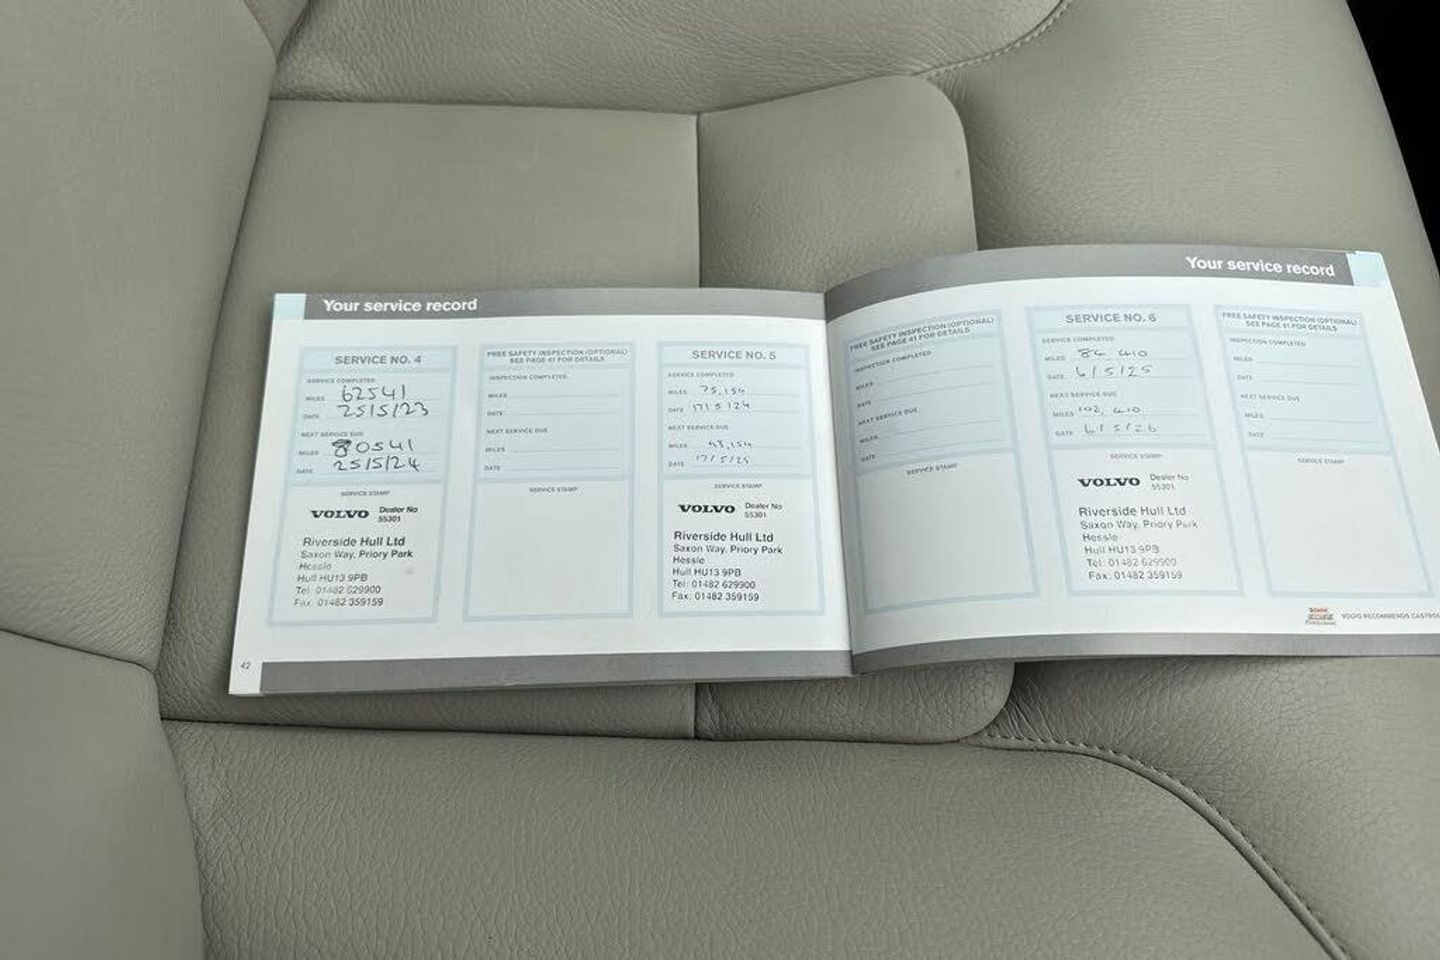 Your service record
SERVICE NO. 4
SERVICE COMPLETED
MILES 62541
DATE 25/5/23
NEXT SERVICE DUE
MILES 80541
DATE 25/5/24
SERVICE STAMP
VOLVO Dealer No
55301
Riverside Hull Ltd
Saxon Way, Priory Park
Hessle
Hull HU13 9PB
Tel: 01482 629900
Fax: 01482 359159
42
FREE SAFETY INSPECTION (OPTIONAL)
SEE PAGE 41 FOR DETAILS
INSPECTION COMPLETED
MILES
DATE
NEXT SERVICE DUE
MILES
DATE
SERVICE STAMP
SERVICE NO. 5
SERVICE COMPLETED
MILES 75,154
DATE 17/5/24
NEXT SERVICE DUE
MILES 93,154
DATE 17/5/25
SERVICE STAMP
VOLVO Dealer No
55301
Riverside Hull Ltd
Saxon Way, Priory Park
Hessle
Hull HU13 9PB
Tel: 01482 629900
Fax: 01482 359159
Your service record
FREE SAFETY INSPECTION (OPTIONAL)
SEE PAGE 41 FOR DETAILS
INSPECTION COMPLETED
MILES
DATE
NEXT SERVICE DUE
MILES
DATE
SERVICE STAMP
SERVICE NO. 6
SERVICE COMPLETED
MILES 84 410
DATE 6/5/25
NEXT SERVICE DUE
MILES 102, 410
DATE 6/5/26
SERVICE STAMP
VOLVO Dealer No
55301
Riverside Hull Ltd
Saxon Way, Priory Park
Hessle
Hull HU13 9PB
Tel: 01482 629900
Fax: 01482 359159
FREE SAFETY INSPECTION (OPTIONAL)
SEE PAGE 41 FOR DETAILS
INSPECTION COMPLETED
MILES
DATE
NEXT SERVICE DUE
MILES
DATE
SERVICE STAMP
VOLVO RECOMMENDS CASTROL